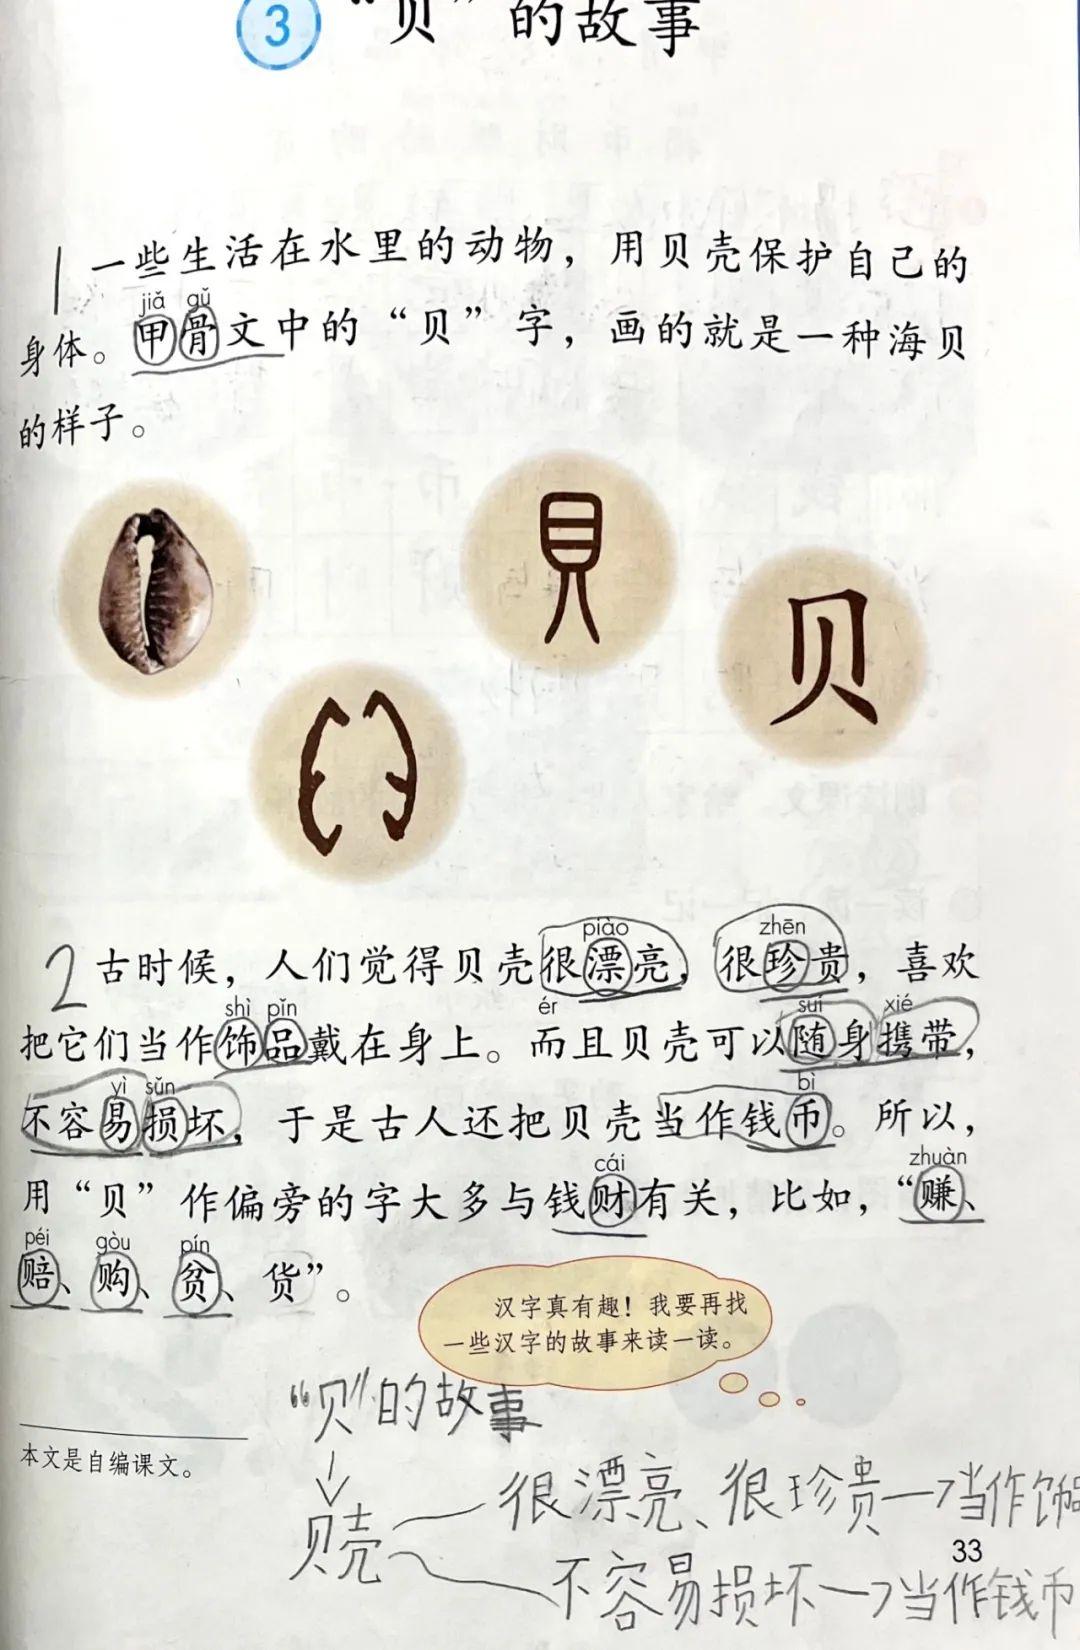 3 “贝”的故事
1 一些生活在水里的动物，用贝壳保护自己的
jiǎ gǔ
身体。甲骨文中的“贝”字，画的就是一种海贝
的样子。
貝
贝
piào zhēn
2 古时候，人们觉得贝壳很漂亮，很珍贵，喜欢
shì pǐn ér suí xié
把它们当作饰品戴在身上。而且贝壳可以随身携带，
yì sǔn bì
不容易损坏，于是古人还把贝壳当作钱币。所以，
cái zhuàn
用“贝”作偏旁的字大多与钱财有关，比如，“赚、
péi gòu pín
赔、购、贫、货”。
汉字真有趣！我要再找
一些汉字的故事来读一读。
“贝”的故事
本文是自编课文。
贝壳
很漂亮、很珍贵→当作饰品
33
不容易损坏→当作钱币